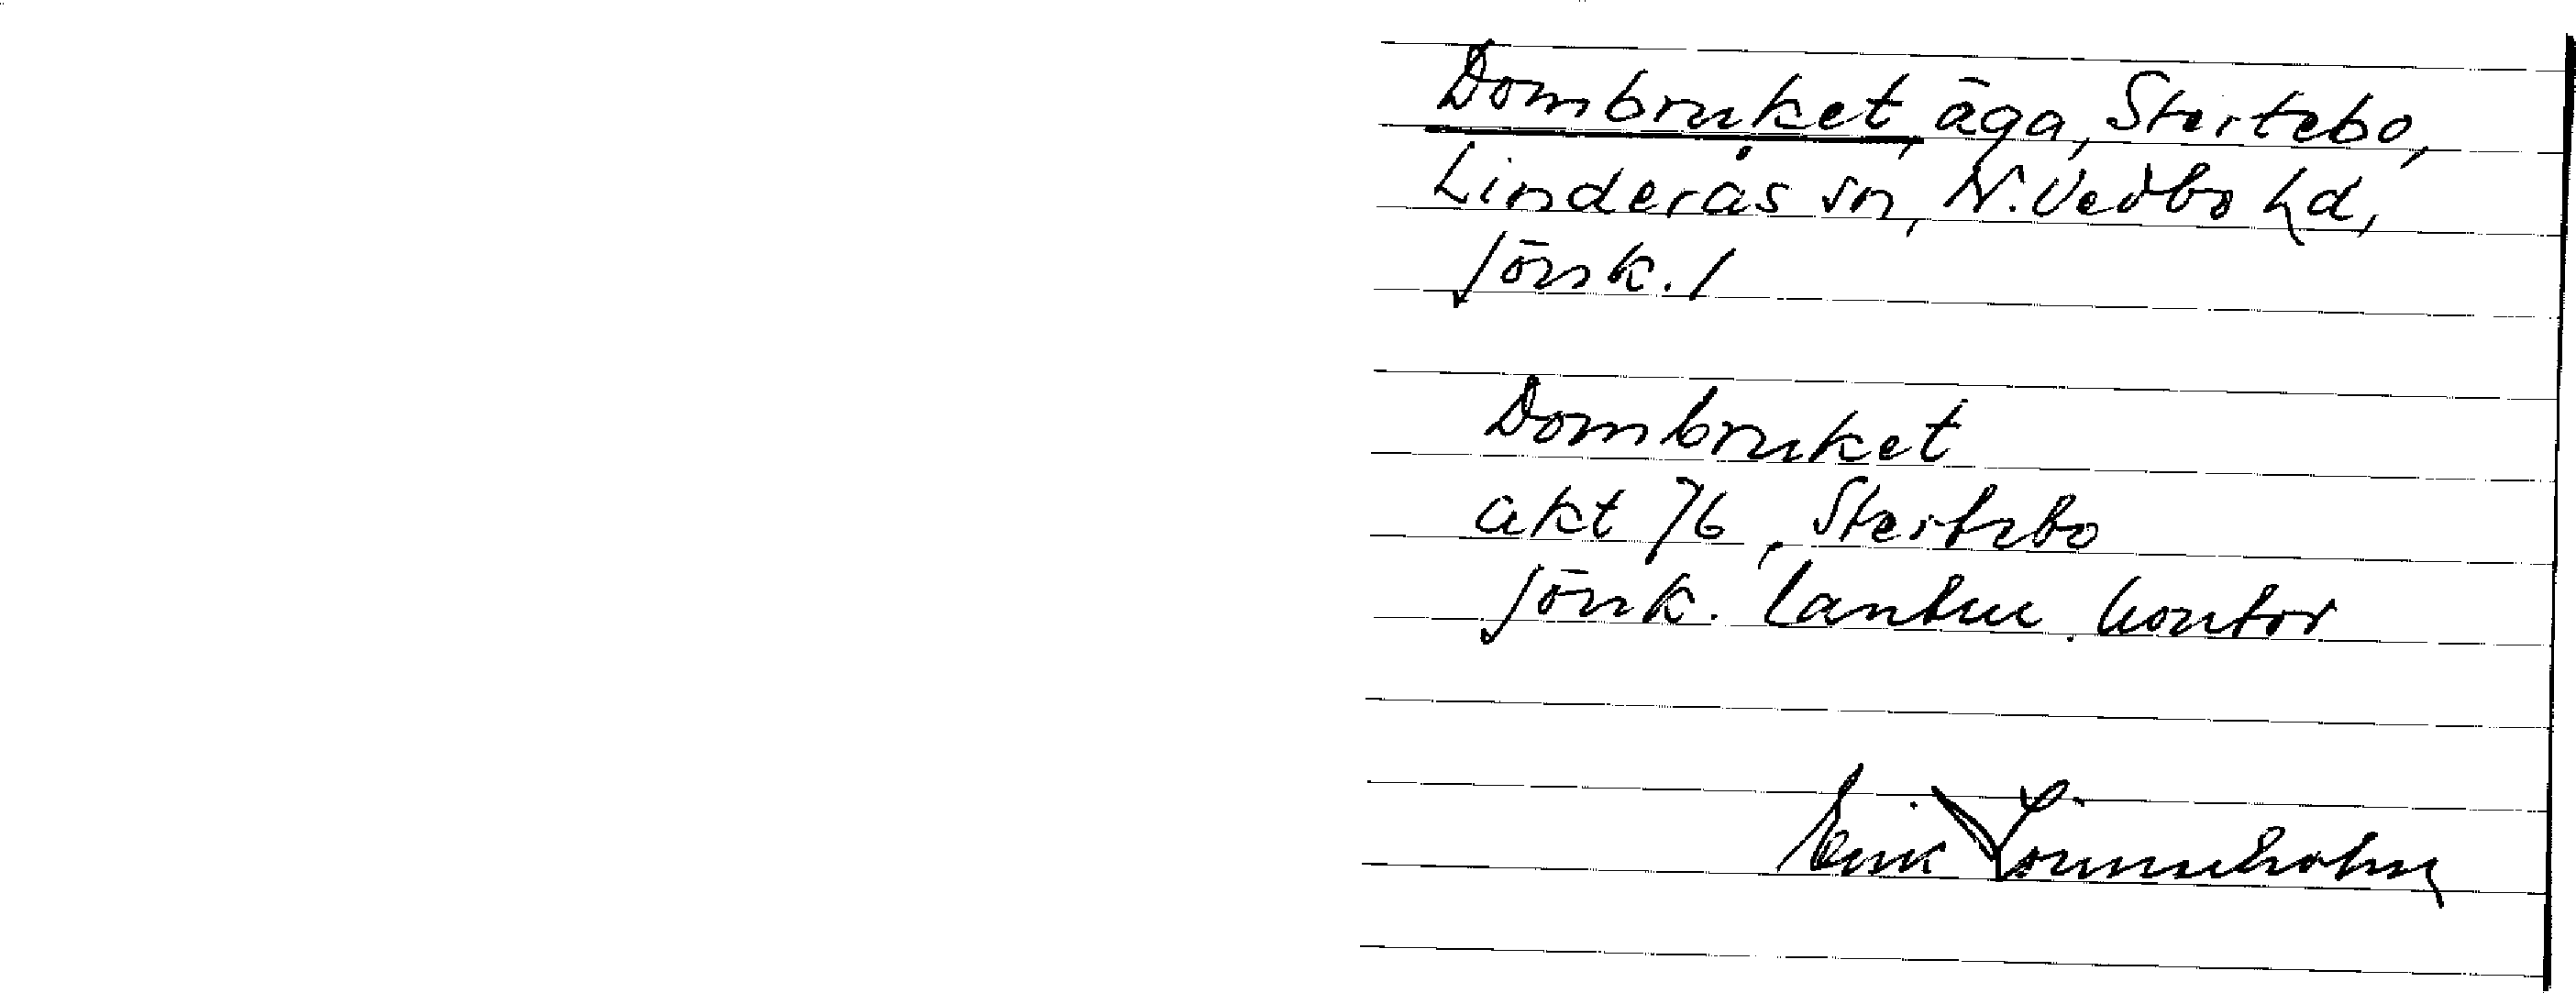 Dombruket, äga, Stertebo,
Linderås sn, N. Vedbo hd,
Jönk. l
Dombruket
akt 76, Stertebo
Jönk. Lantm. kontor
Erik Lönnholm